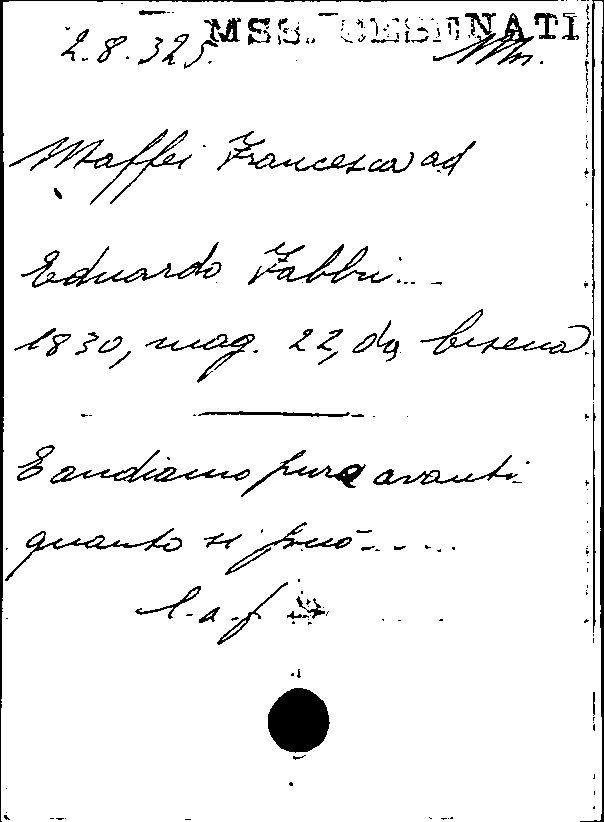 MSS. CESENATI
2.8.325. Mn.
Maffei Francesca ad
Eduardo Fabbri...
1830, mag. 22, da Cesena
E andiamo pure avanti
quanto si può.....
l. a. f.